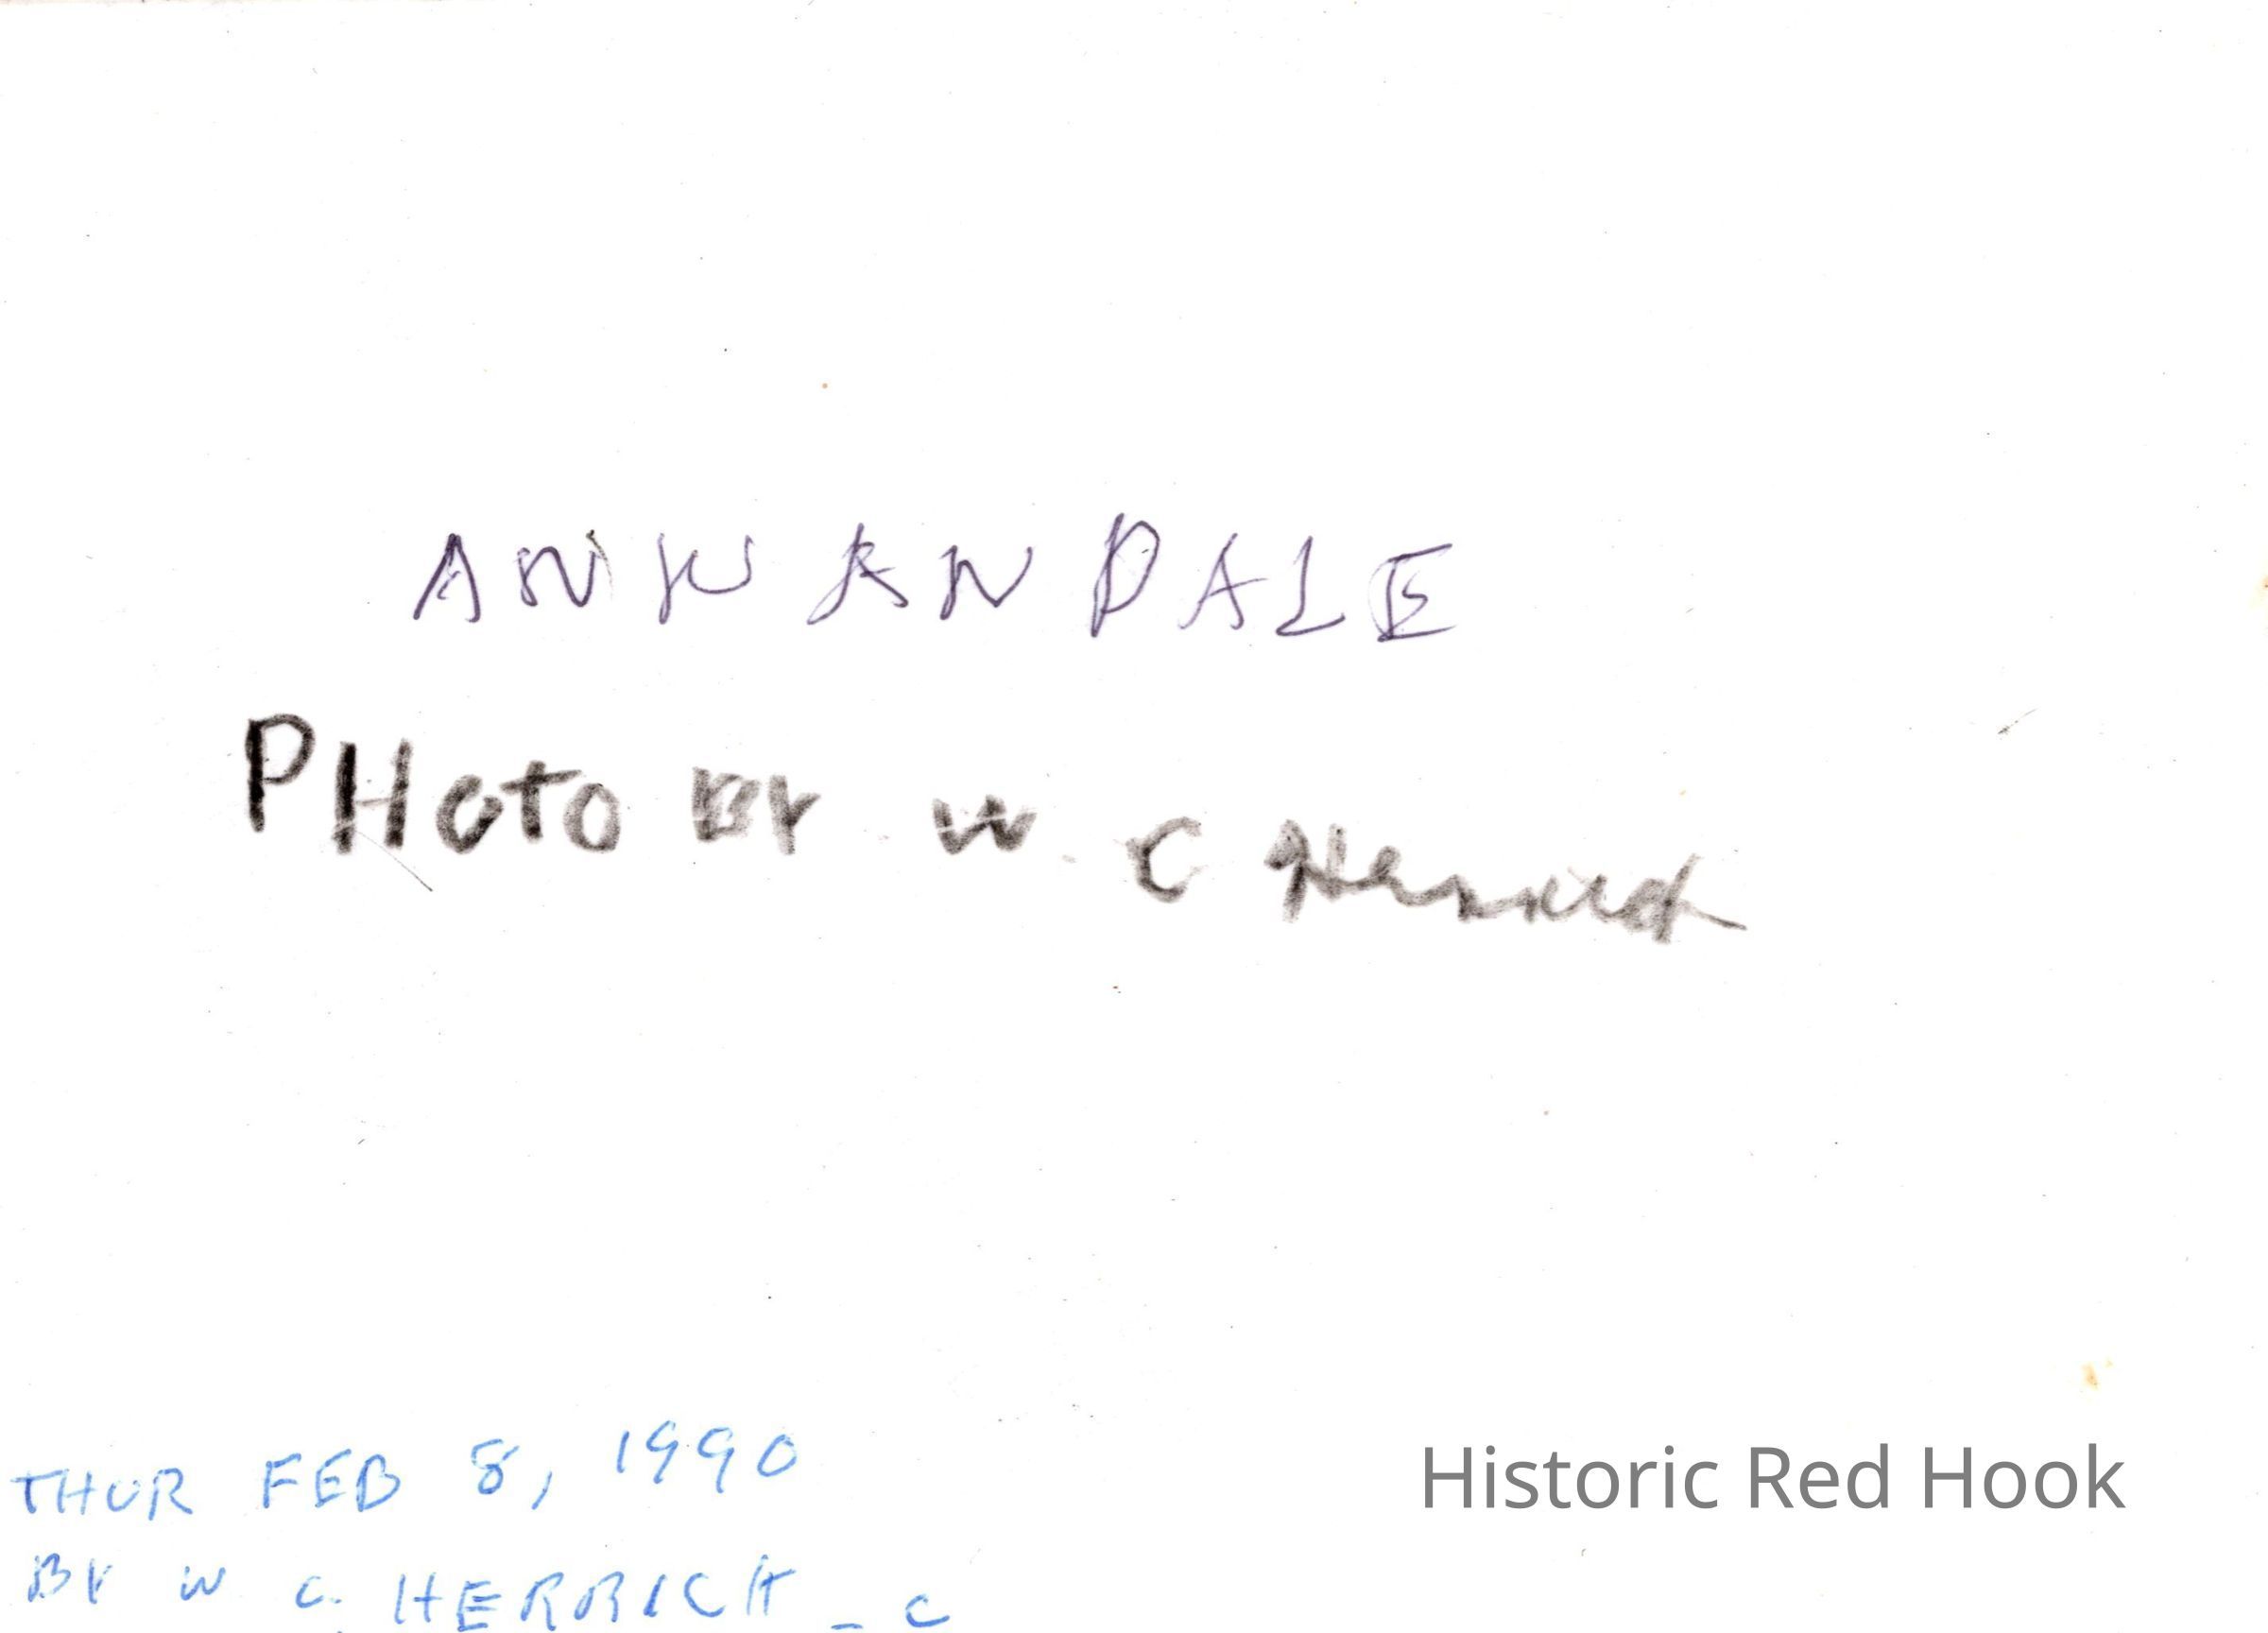 ANNANDALE
PHoto BY W. C Herrick
THUR FEB 8, 1990
BY W C. HERRICK _ C
Historic Red Hook